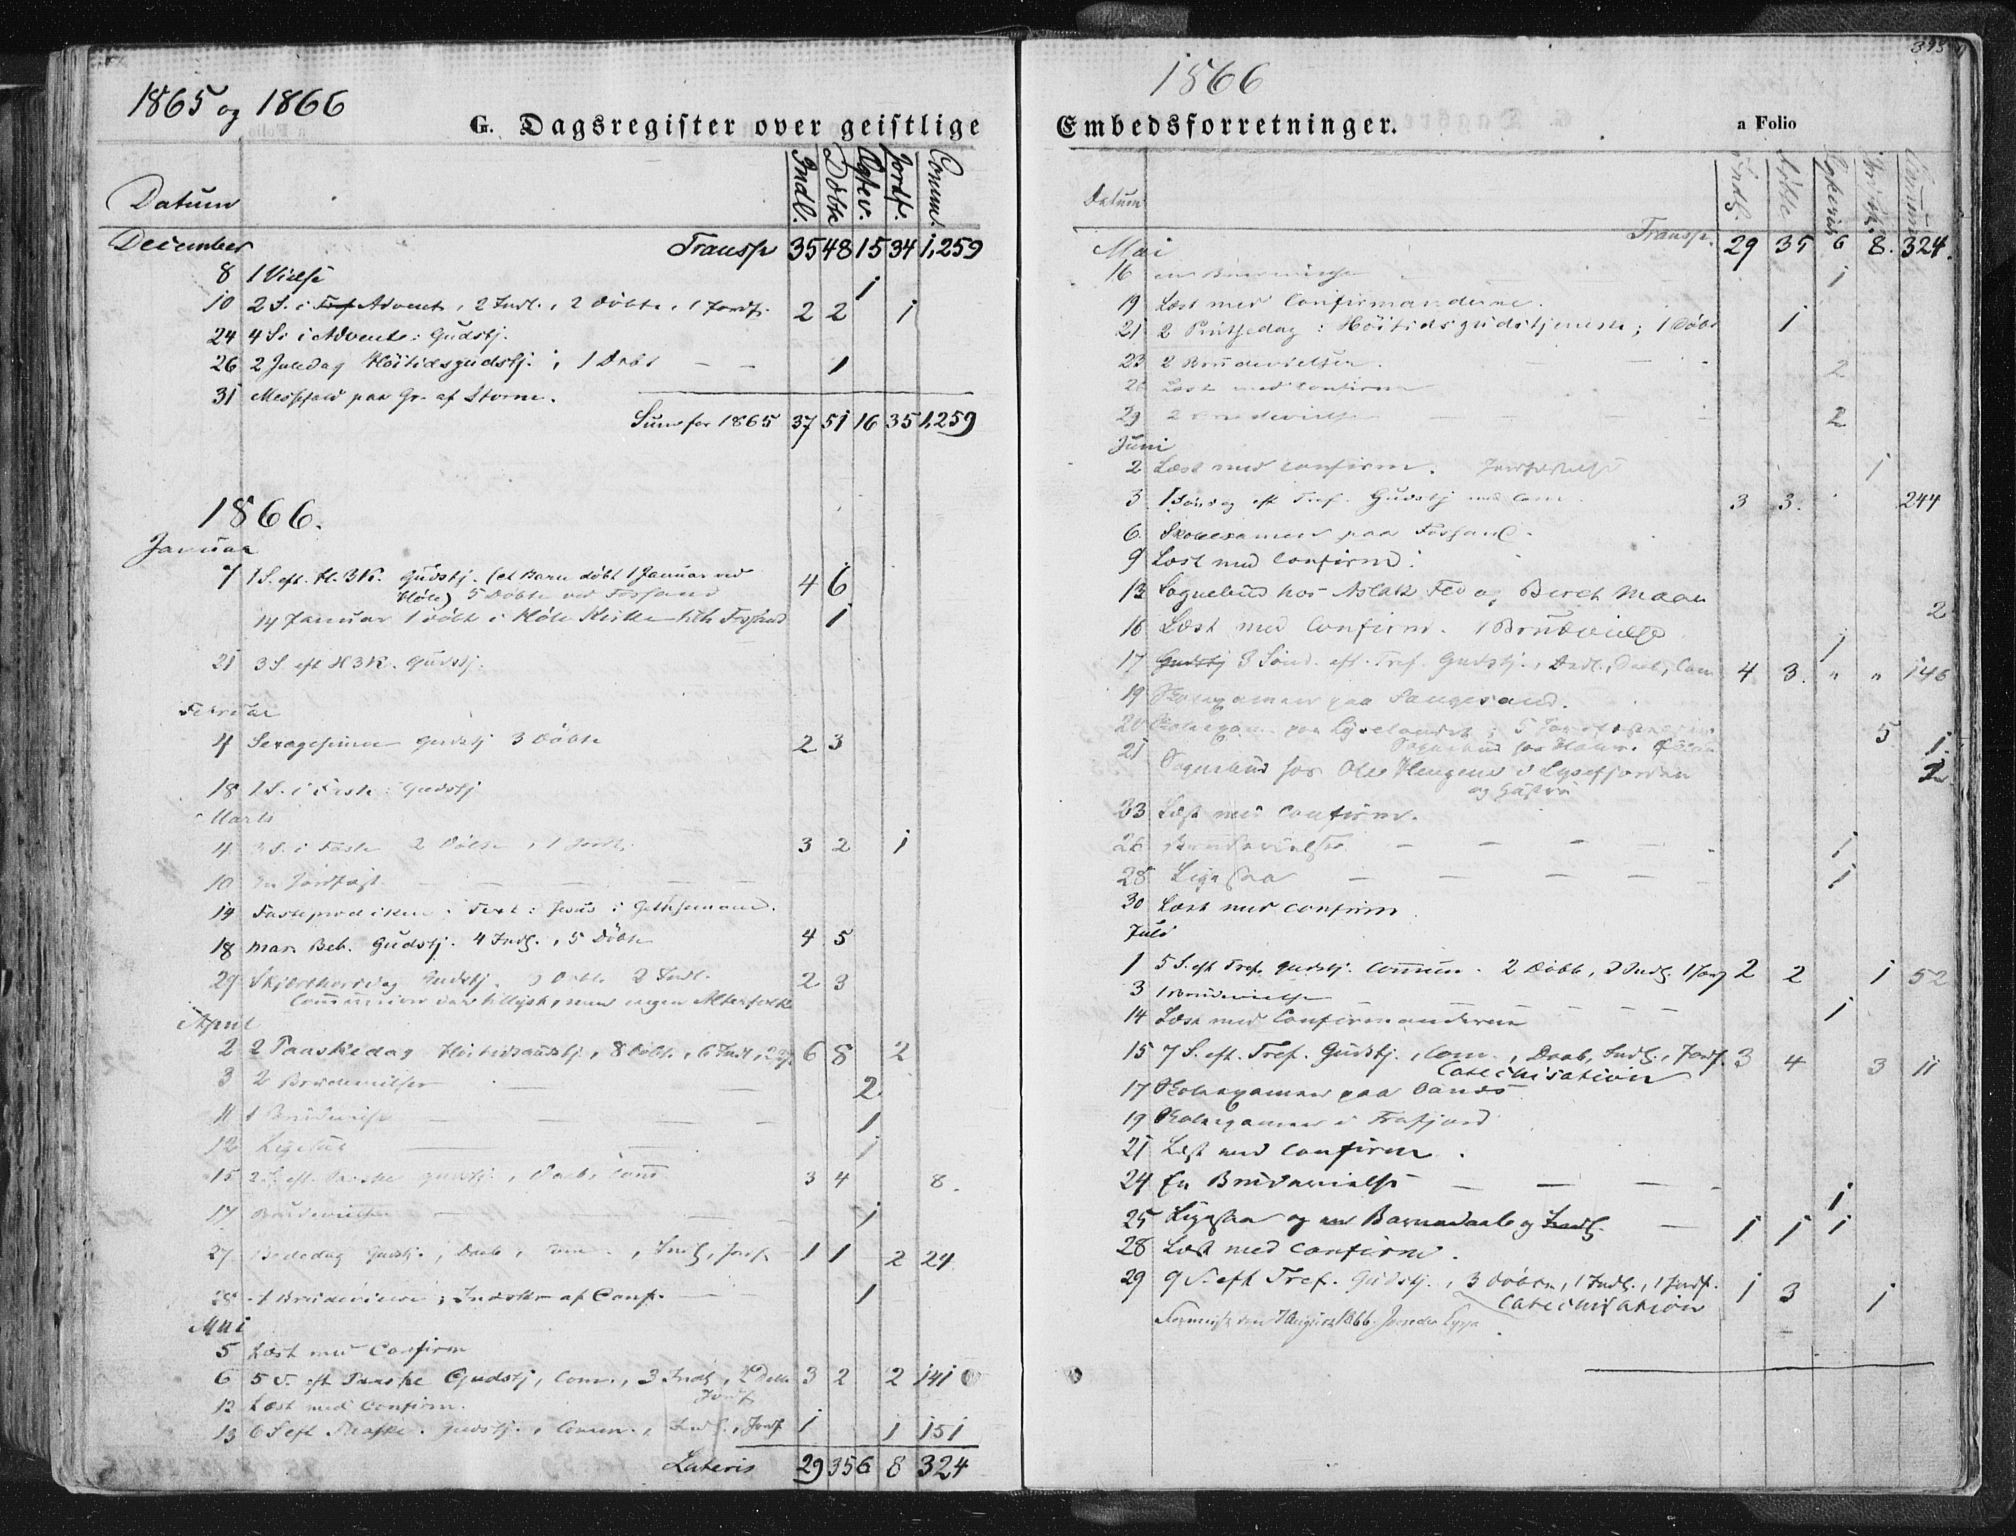 1865 og 1866
G. Dagsregister over geistlige
Datum Indl. Døbte Egtev. Jordf. Comm.
December Transp 35 48 15 34 1,259
8 1 Vielse 1
10 2 S. i Advent, 2 Indl., 2 Døbte, 1 Jordf. 2 2 1
24 4 S. i Advent: Gudstj.
26 2 Juledag Høitidsgudstj., 1 Døbt — — 1
31 Messefald paa Gr. af Storm.
Sum for 1865 37 51 16 35 1,259
1866.
Januar
7 1 S. eft. H. 3 K. Gudstj. (et Barn døbt 1 Januar ved
Høle) 5 Døbte ved Fossand 4 6
14 Januar 1 døbt i Høle Kirke 1
21 3 S. eft H 3 K. Gudstj.
Februar
4 Sexagesima Gudstj 3 Døbte 2 3
18 1 S. i Faste: Gudstj
Marts
4 3 S. i Faste 2 Døbte, 1 Jordf. 3 2 1
10 En Jordfæst — — — —
14 Fasteprædiken: Text: Jesus i Gethsemane.
18 Mar. Beb. Gudstj. 4 Indl., 5 Døbte 4 5
29 Skjærthorsdag Gudstj. 3 Døbte 2 Indl. 2 3
Communion var tillyst, men ingen Altergjæste
April
2 2 Paaskedag Høitidsgudstj., 8 Døbte, 6 Indl., 6 8 2
3 2 Brudevielser — — 2
11 1 Brudevielse — — — 1
12 Ligesaa — — 1
15 2 S. eft. Paaske Gudstj., Daab, Com 3 4 8.
17 Brudevielse — — — 1
27 Bededag Gudstj., Daab, Com., Indl., Jordf 1 1 2 24
28 1 Brudevielse; Indskr. af Conf. — — 1
Mai
5 Læst med Confirm
6 5 S. eft Paaske Gudstj, Com., 3 Indl, 2 Døbte
Jordf 3 2 2 141
12 Læst med Confirm.
13 6 S eft Paaske. Gudstj., Comm., Indl., Jordf 1 1 151
Lateris 29 35 6 8 324
1866
Embedsforretninger.
a Folio
Datum Indl. Døbte Comm
Mai Transp. 29 35 6 8. 324.
16 en Brudevielse — 1
19 Læst med Confirmanderne.
21 2 Pintsedag: Høitidsgudstjeneste; 1 Døbt 1
23 2 Brudevielser. — — 2
26 Læst med Confirm
29 2 Brudevielser — — — 2
Juni
2 Læst med Confirm. Jordfæstelse 1
3 1 Søndag eft Tref. Gudstj med Com. 3 3. 244
6. Skoleexamen paa Fossand.
9 Læst med Confirm.
13 Sognebud hos Aslak Fed og Beret Maan 2
16 Læst med Confirm. 1 Brudevielse 1
17 3 Sønd. eft. Tref. Gudstj., Indl., Daab, Com 4 3. " " 146
19 Skoleexamen paa Songesand.
20 Skoleexam. paa Lyselandet; 5 Jordfæstelser 5
Sognebud hos 1
21 Sognebud hos Ole Haugene i Lysefjorden
og Hustru 2
23 Læst med Confirm.
26 Brudevielse — — — — 1
28 Ligesaa — — — — 1
30 Læst med Confirm.
Juli
1 5 S. eft Tref. Gudstj. Commun. 2 Døbte, 2 Indl. 1 Jordf 2 2 1 52
3 1 Brudevielse — — — — 1
14 Læst med Confirmanderne
15 7 S. eft. Tref. Gudstj., Com., Daab, Indl., Jordf. 3 4 3 11
Catechisation
17 Skoleexamen paa Oanæs
19 Skoleexamen i Frafjord
21 Læst med Confirm.
24 En Brudevielse — — — 1
25 Ligesaa og en Barnedaab og Indl. — 1 1 1
28 Læst med Confirm.
29 9 S. eft Tref. Gudstj., 3 Døbte, 1 Indl., 1 Jordf. 1 3 1
Catechisation